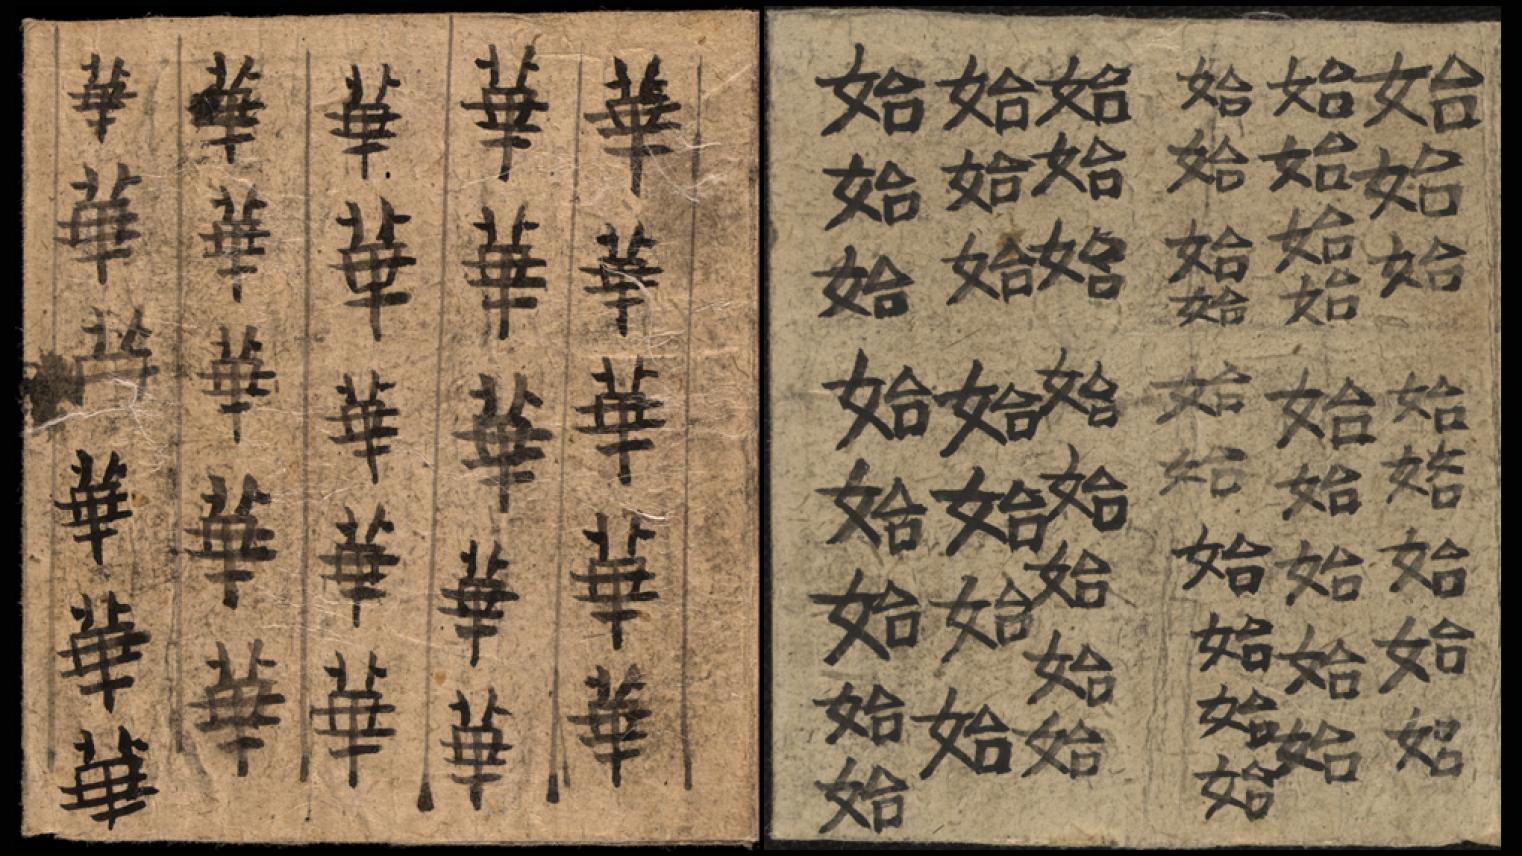 華華華華華
華華華華華
華華華華華
華華華華華
華華華華華華
始始始始始始始始
始始始始始始始始始
始始始始始始始始始始
始始始始始始始始
始始始始始始始
始始始始始始始始